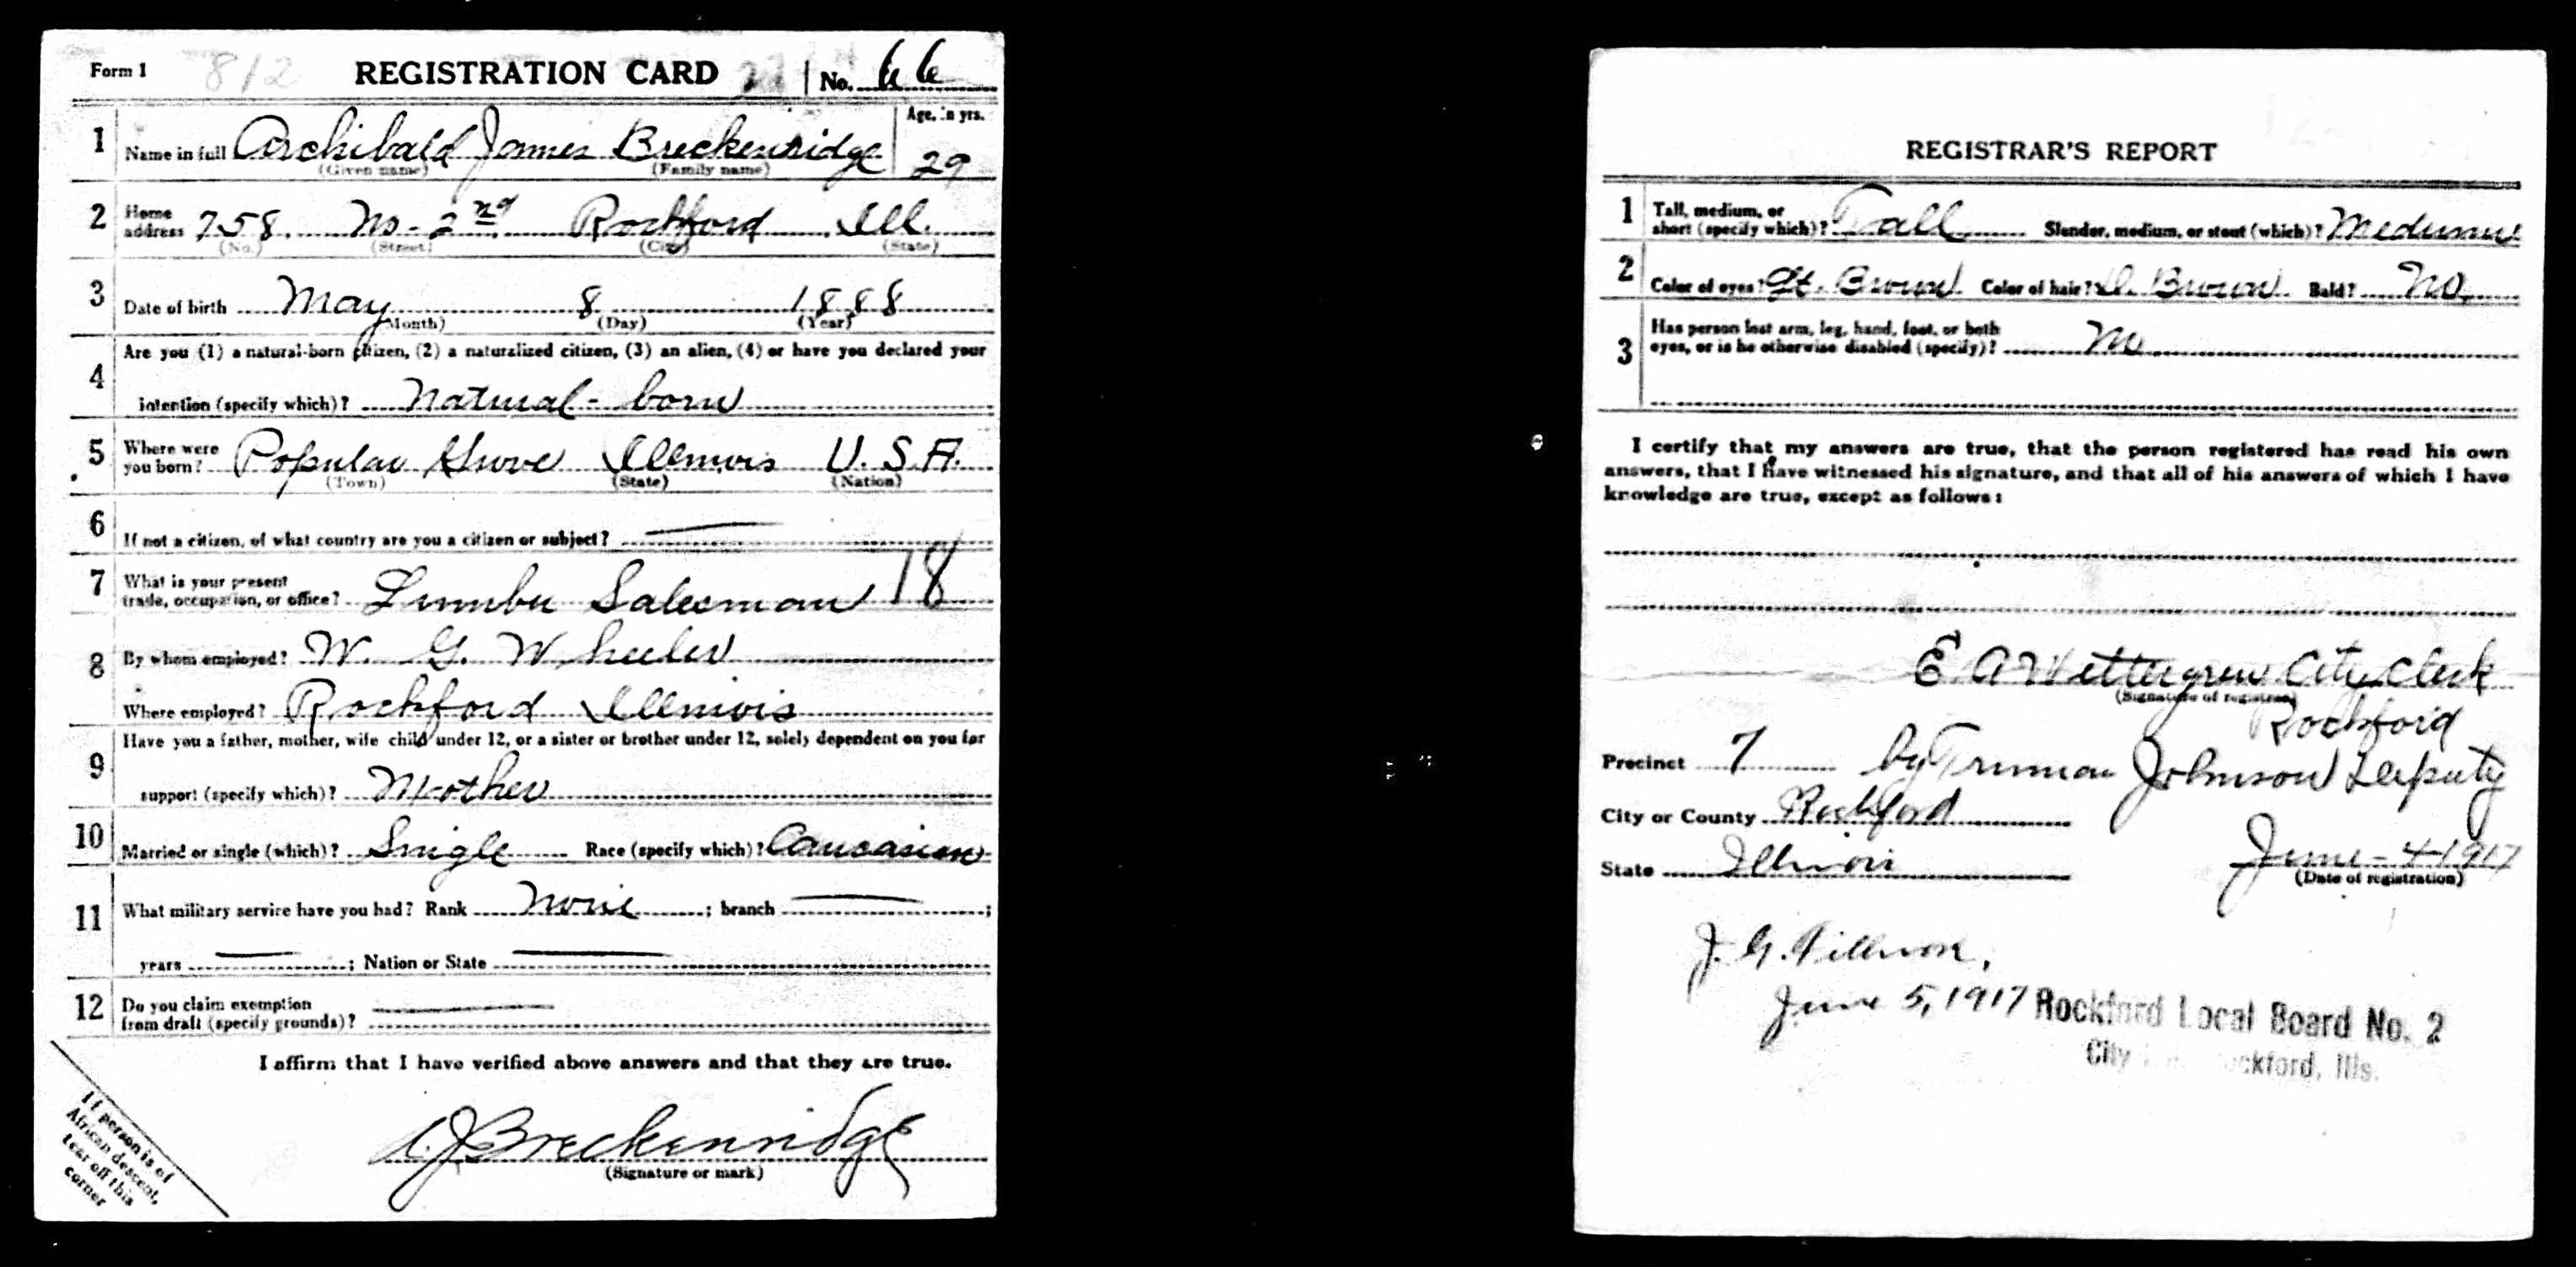 Form 1 812 REGISTRATION CARD No. 66
1 Name in full Archibald James Breckenridge Age, in yrs. 29
(Given name) (Family name)
2 Home address 758 No - 2nd Rockford Ill.
(No.) (Street) (City) (State)
3 Date of birth May 8 1888
(Month) (Day) (Year)
4 Are you (1) a natural-born citizen, (2) a naturalized citizen, (3) an alien, (4) or have you declared your
intention (specify which)? Natural - born
5 Where were you born? Popular Grove Illinois U.S.A.
(Town) (State) (Nation)
6 If not a citizen, of what country are you a citizen or subject? —
7 What is your present trade, occupation, or office? Lumber Salesman 18
8 By whom employed? W. G. Wheeler
Where employed? Rockford Illinois
9 Have you a father, mother, wife child under 12, or a sister or brother under 12, solely dependent on you for
support (specify which)? Mother
10 Married or single (which)? Single Race (specify which)? Caucasian
11 What military service have you had? Rank None ; branch — ;
years — ; Nation or State —
12 Do you claim exemption from draft (specify grounds)? —
I affirm that I have verified above answers and that they are true.
A. J. Breckenridge
(Signature or mark)
If person is of
African descent,
tear off this
corner
REGISTRAR'S REPORT
1 Tall, medium, or short (specify which)? Tall Slender, medium, or stout (which)? Medium
2 Color of eyes? Lt. Brown Color of hair? D. Brown Bald? No
3 Has person lost arm, leg, hand, foot, or both
eyes, or is he otherwise disabled (specify)? No
I certify that my answers are true, that the person registered has read his own
answers, that I have witnessed his signature, and that all of his answers of which I have
knowledge are true, except as follows:
E A Wettergren City Clerk
(Signature of registrar)
Rockford
Precinct 7 by Truman Johnson Deputy
City or County Rockford
State Illinois June - 4 1917
(Date of registration)
J. G.
June 5, 1917 Rockford Local Board No. 2
City Rockford, Ills.